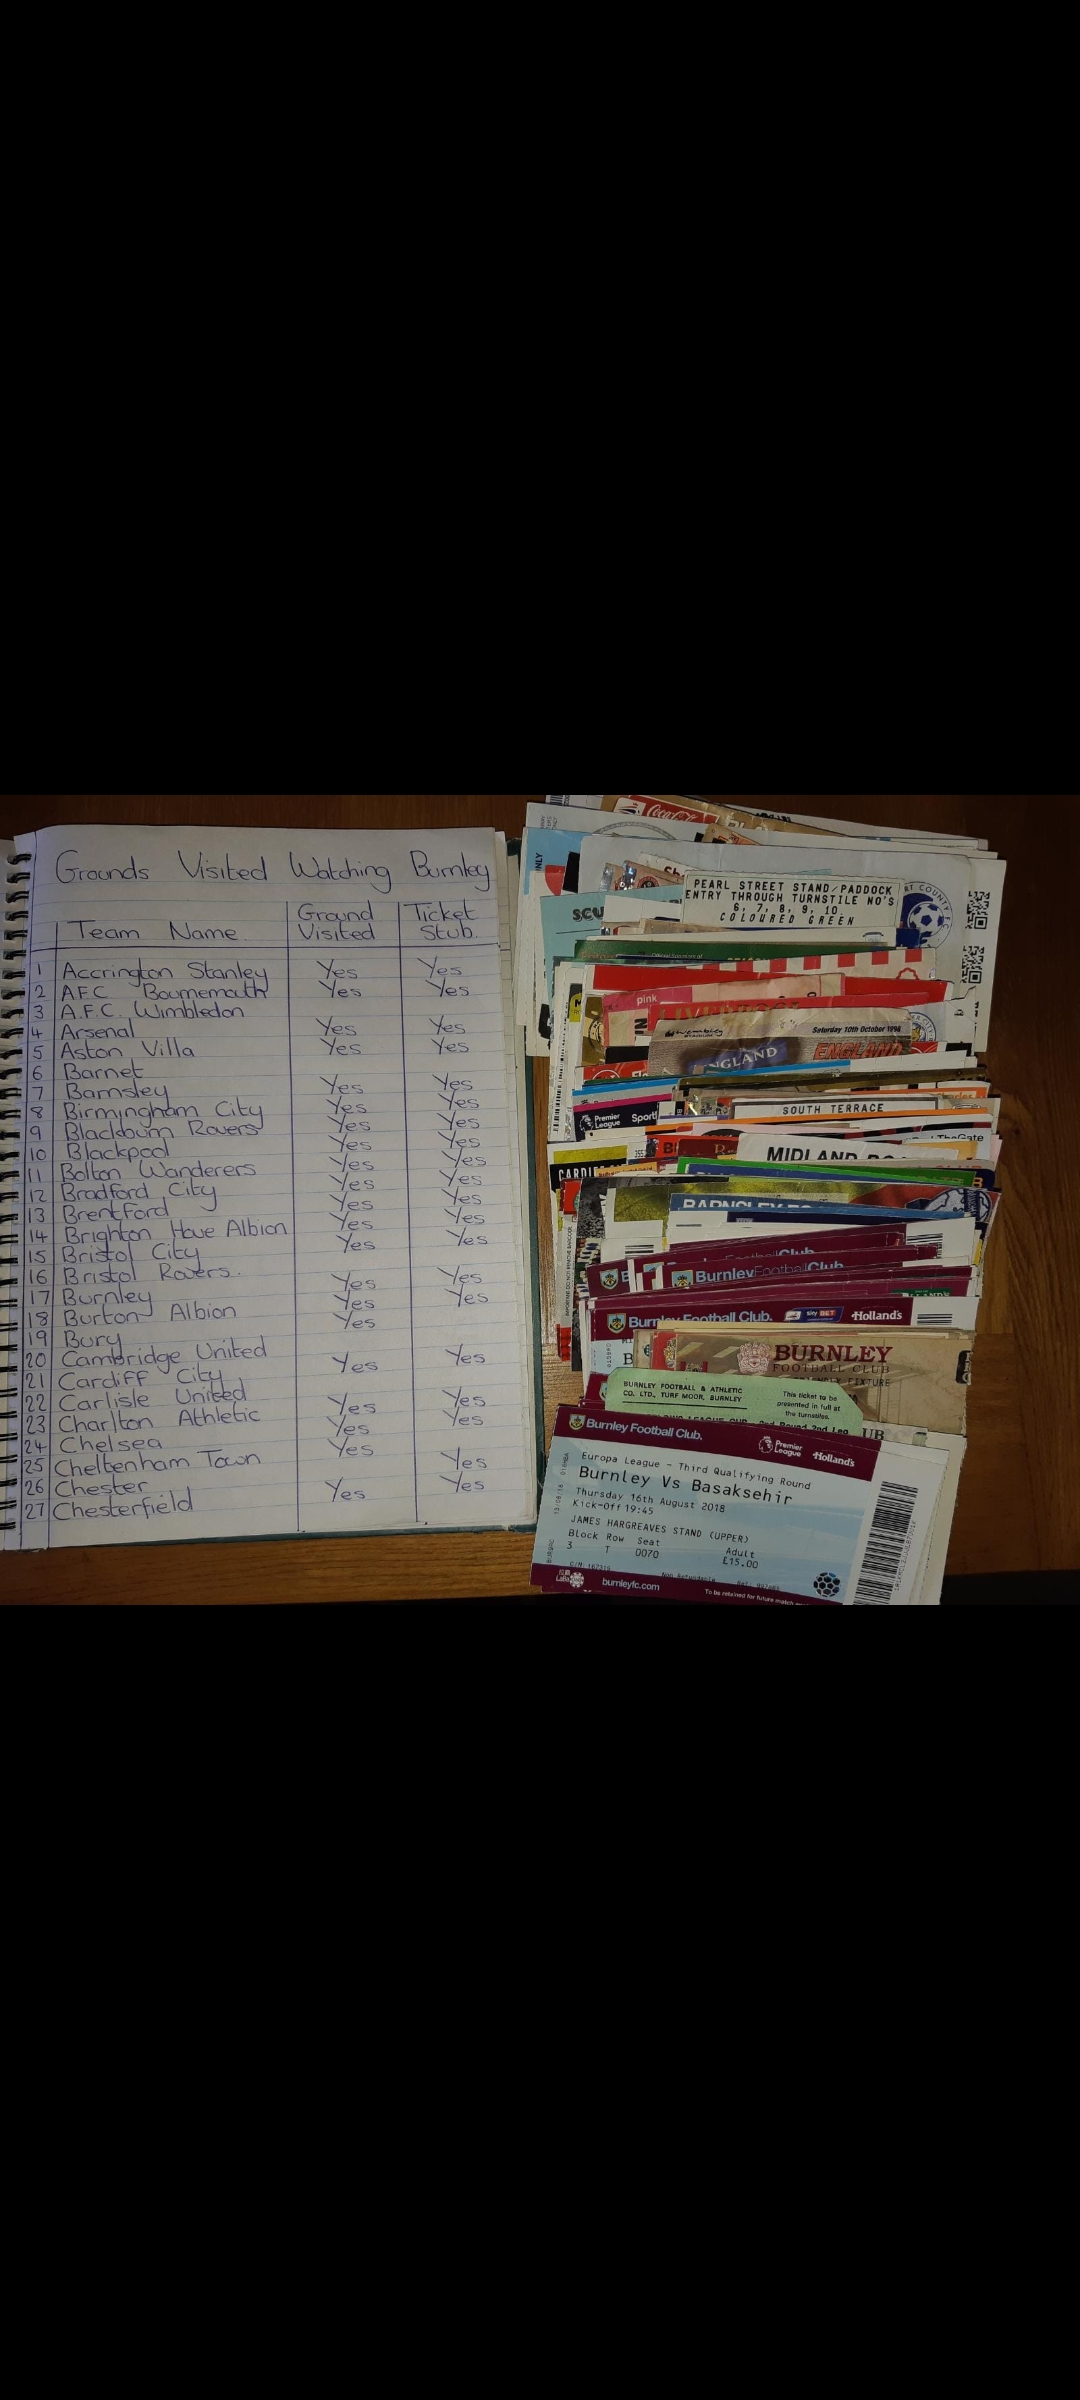 Grounds Visited Watching Burnley
Team Name Ground Visited Ticket Stub
1 Accrington Stanley Yes Yes
2 AFC Bournemouth Yes Yes
3 A.F.C. Wimbledon
4 Arsenal Yes Yes
5 Aston Villa Yes Yes
6 Barnet
7 Barnsley Yes Yes
8 Birmingham City Yes Yes
9 Blackburn Rovers Yes Yes
10 Blackpool Yes Yes
11 Bolton Wanderers Yes Yes
12 Bradford City Yes Yes
13 Brentford Yes Yes
14 Brighton Hove Albion Yes Yes
15 Bristol City Yes Yes
16 Bristol Rovers.
17 Burnley Yes Yes
18 Burton Albion Yes Yes
19 Bury Yes
20 Cambridge United
21 Cardiff City Yes Yes
22 Carlisle United
23 Charlton Athletic Yes Yes
24 Chelsea Yes Yes
25 Cheltenham Town Yes
26 Chester Yes
27 Chesterfield Yes Yes
Coca-Cola
PEARL STREET STAND/PADDOCK
ENTRY THROUGH TURNSTILE NO'S
6, 7, 8, 9, 10.
COLOURED GREEN
COUNTY F.C.
SCU
pink
Wembley
Saturday 10th October 1998
ENGLAND
Premier League
SOUTH TERRACE
TheGate
MIDLAND
CARDIFF
BARNSLEY FC
Burnley Football Club
Burnley Football Club. sky BET Holland's
BURNLEY
FOOTBALL CLUB
FIXTURE
BURNLEY FOOTBALL & ATHLETIC
CO. LTD., TURF MOOR, BURNLEY
This ticket to be
presented in full at
the turnstiles.
2nd Round 2nd Leg
Burnley Football Club.
Premier League
Holland's
Europa League - Third Qualifying Round
Burnley Vs Basaksehir
Thursday 16th August 2018
Kick-Off 19:45
JAMES HARGREAVES STAND (UPPER)
Block Row Seat
3 T 0070
Adult
£15.00
burnleyfc.com
To be retained for future match